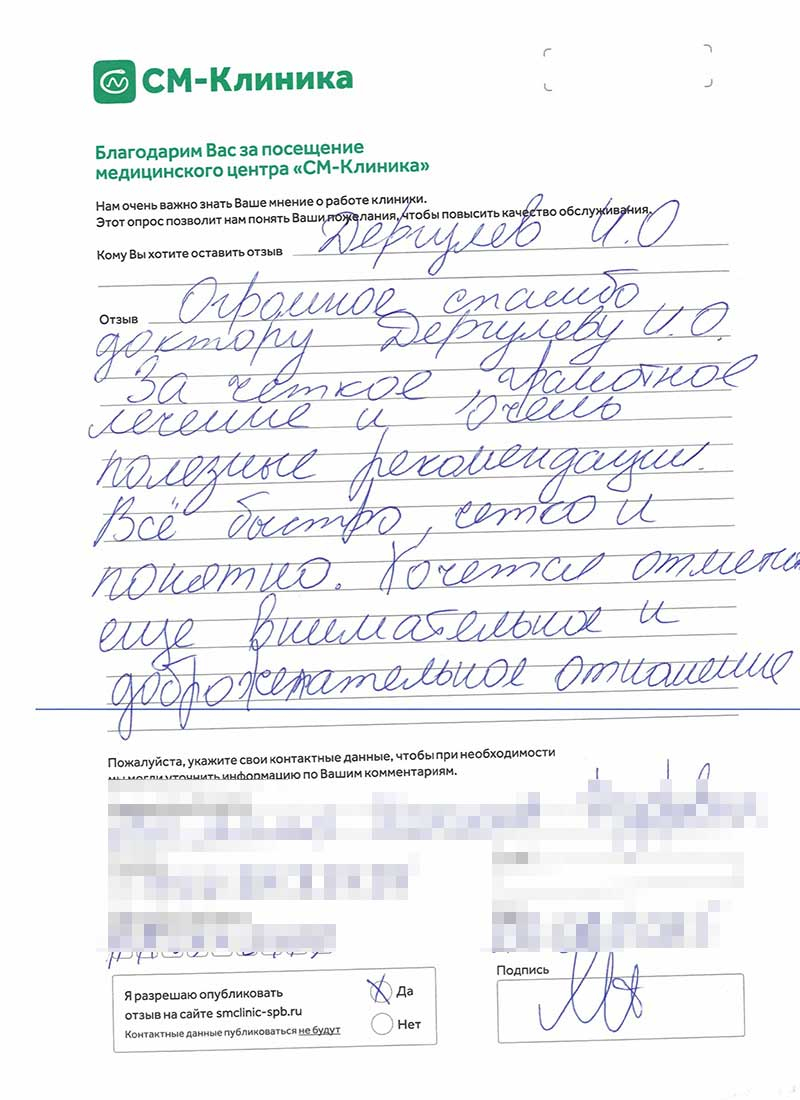 СМ-Клиника
Благодарим Вас за посещение
медицинского центра «СМ-Клиника»
Нам очень важно знать Ваше мнение о работе клиники.
Этот опрос позволит нам понять Ваши пожелания, чтобы повысить качество обслуживания.
Кому Вы хотите оставить отзыв Дергулев И.О
Отзыв Огромное спасибо
доктору Дергулеву И.О.
За четкое, грамотное
лечение и очень
полезные рекомендации.
Всё быстро, четко и
понятно. Хочется
еще внимательное и
доброжелательное отношение
Пожалуйста, укажите свои контактные данные, чтобы при необходимости
мы могли уточнить информацию по Вашим комментариям.
Я разрешаю опубликовать
отзыв на сайте smclinic-spb.ru
Контактные данные публиковаться не будут
Да
Нет
Подпись